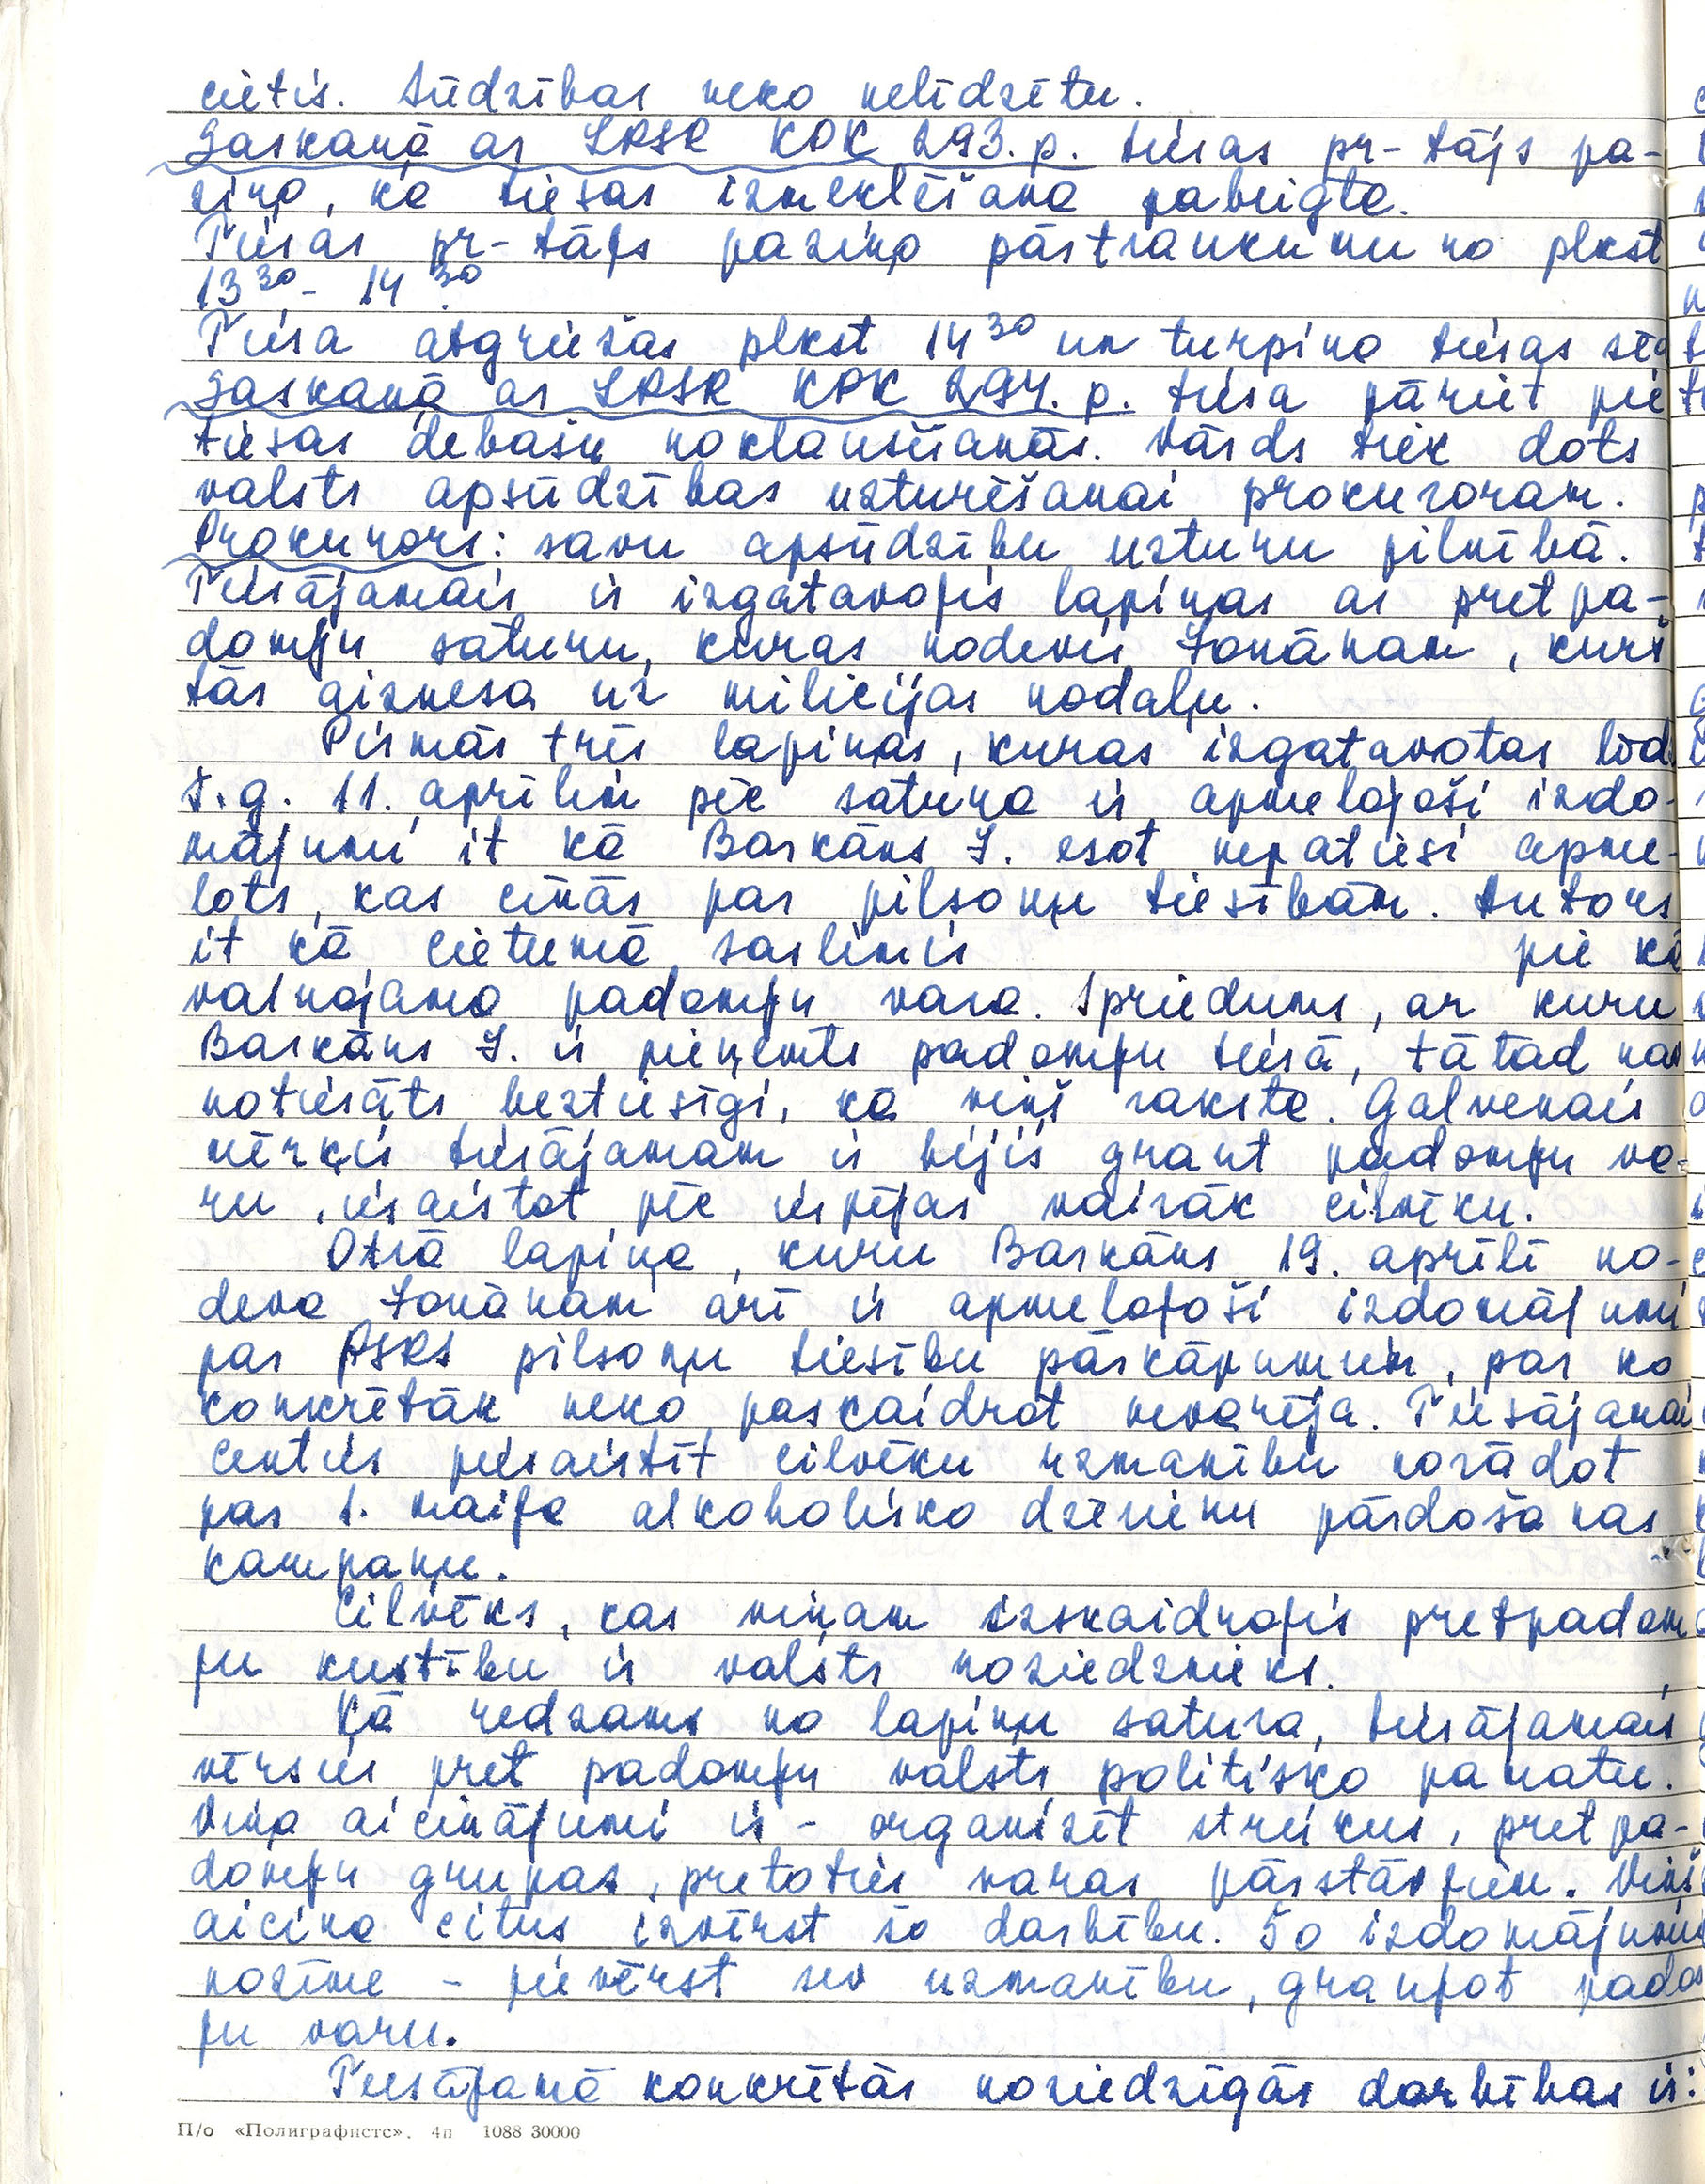 cietis. Sūdzības neko nelīdzētu.
Saskaņā ar LPSR KPK 293. p. tiesas pr-tājs pa-
ziņo, ka tiesas izmeklēšana pabeigta.
Tiesas pr-tājs paziņo pārtraukumu no plkst
13 30 - 14 30.
Tiesa atgriežas plkst 14 30 un turpina tiesas sēd
Saskaņā ar LPSR KPK 294. p. tiesa pāriet pie
tiesas debašu noklausīšanās. Vārds tiek dots
valsts apsūdzības uzturēšanai prokuroram.
Prokurors: savu apsūdzību uzturu pilnībā.
Tiesājamais ir izgatavojis lapiņas ar pretpa-
domju saturu, kuras nodevis Jonānam, kurš
tās aiznesa uz milicijas nodaļu.
Pirmās trīs lapiņas, kuras izgatavotas līdz
š.g. 11. aprīlim pēc satura ir apmelojoši izdo-
mājumi it kā Barkāns J. esot nepatiesi apme-
lots, kas cīnās par pilsoņu tiesībām. Autors
it kā cietumā saslimis pie kā
vainojama padomju vara. Spriedums, ar kuru
Barkāns J. ir pieņemts padomju tiesā, tātad nav
notiesāts beztiesīgi, kā viņš raksta. Galvenais
mērķis tiesājamam ir bijis graut padomju va-
ru, iesaistot pēc iespējas vairāk cilvēku.
Otrā lapiņa, kuru Barkāns 19. aprīlī no-
deva Jonānam arī ir apmelojoši izdomājumi
par PSRS pilsoņu tiesību pārkāpumiem, par ko
konkrētāk neko paskaidrot nevarēja. Tiesājamai
centies piesaistīt cilvēku uzmanību norādot
par 1. maija alkoholisko dzērienu pārdošanas
kampaņu.
Cilvēks, kas viņam izskaidrojis pretpadom
ju kustību ir valsts noziedznieks.
Kā redzams no lapiņu satura, tiesājamais
vērsies pret padomju valsts politisko pamatu.
Viņa aicinājumi ir - organizēt streikus, pretpa-
domju grupas, pretoties varas pārstāvjiem. Viņš
aicina citus izvērst šo darbību. Šo izdomājumu
nozīme - pievērst sev uzmanību, graujot pado
ju varu.
Tiesājamā konkrētās noziedzīgās darbības ir:
П/о «Полиграфистс». 4п 1088 30000